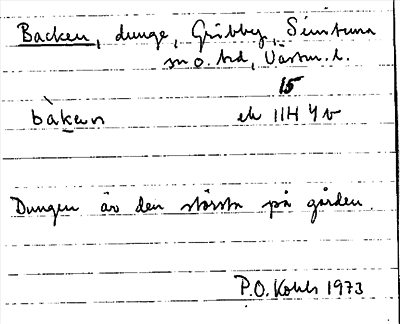 Backen, dunge, Gribby, Simtuna
sn o. hd, Västm. l.
15
bàken ek 11H 4 b
Dungen är den största på gården.
P.O. Kohls 1973